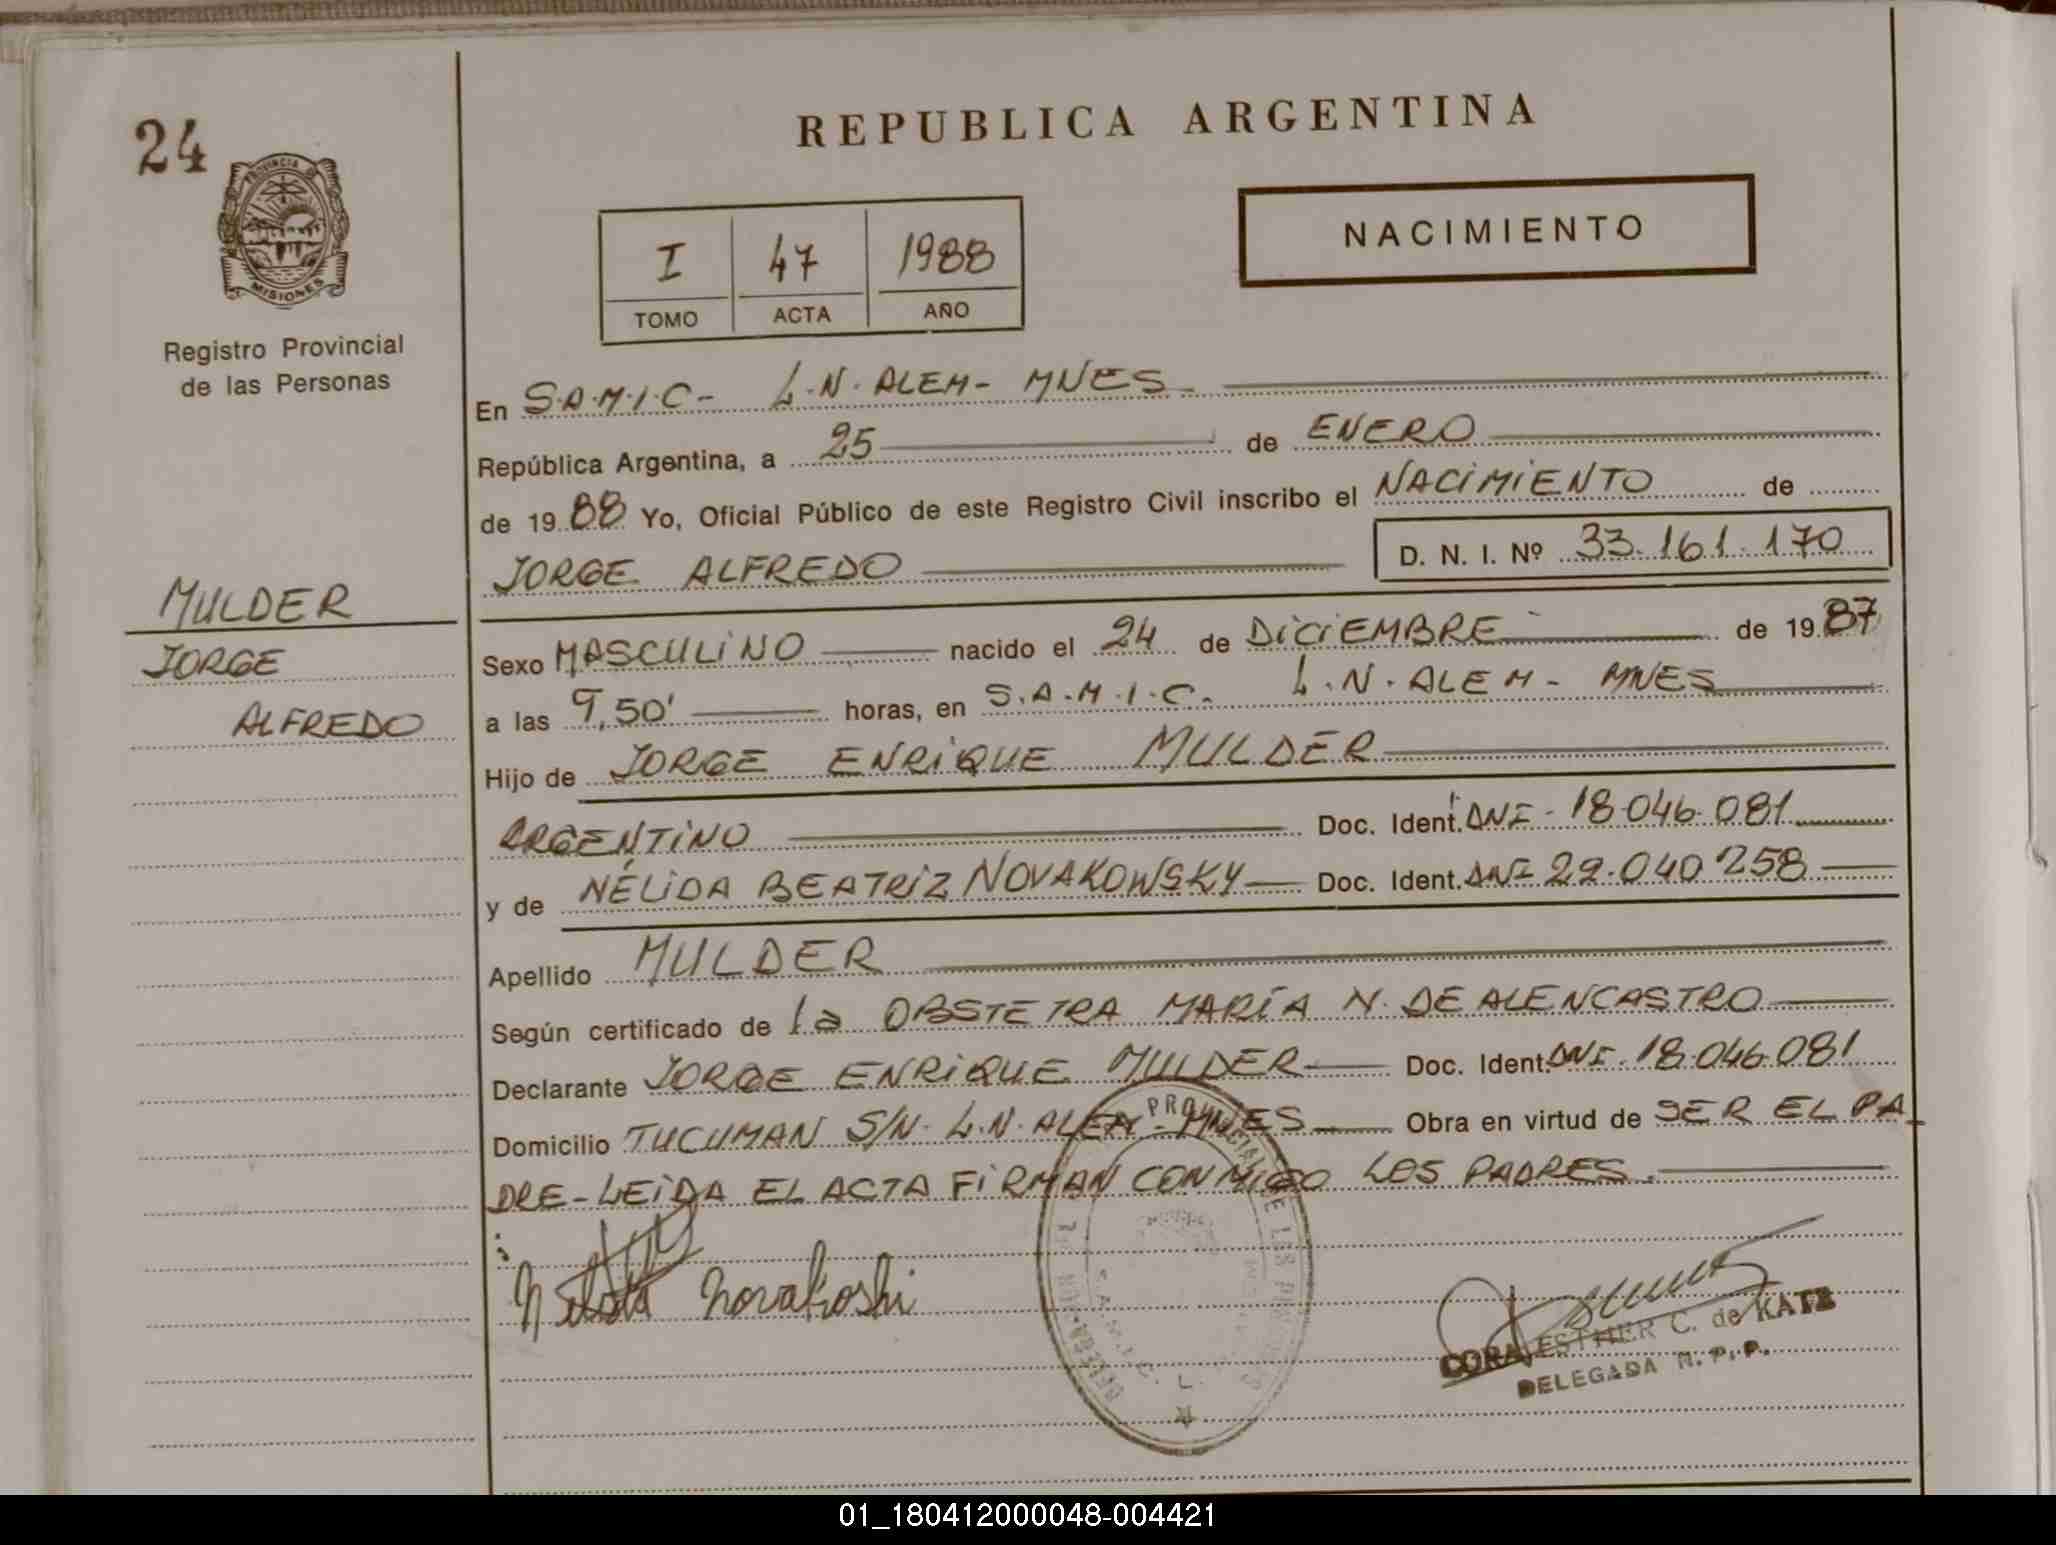 24
REPUBLICA ARGENTINA
PROVINCIA DE
MISIONES
Registro Provincial
de las Personas
I 47 1988
TOMO ACTA AÑO
NACIMIENTO
En S.A.M.I.C- L.N. ALEM- MNES
República Argentina, a 25 de ENERO
de 1988 Yo, Oficial Público de este Registro Civil inscribo el NACIMIENTO de
JORGE ALFREDO D. N. I. Nº 33.161.170
MULDER
JORGE
ALFREDO
Sexo MASCULINO nacido el 24 de DICIEMBRE de 1987
a las 9,50' horas, en S.A.M.I.C. L.N. ALEM- MNES
Hijo de JORGE ENRIQUE MULDER
ARGENTINO Doc. Ident. DNI- 18.046.081
y de NÉLIDA BEATRIZ NOVAKOWSKY Doc. Ident. DNI 29.040.258
Apellido MULDER
Según certificado de la OBSTETRA MARÍA N. DE ALENCASTRO
Declarante JORGE ENRIQUE MULDER Doc. Ident. DNI. 18.046.081
Domicilio TUCUMAN S/N- L.N. ALEM- MNES Obra en virtud de SER EL PA
DRE-LEIDA EL ACTA FIRMAN CONMIGO LOS PADRES.
Nelida Novakoski
CORA ESTHER C. de KATZ
DELEGADA R. P. P.
01_180412000048-004421